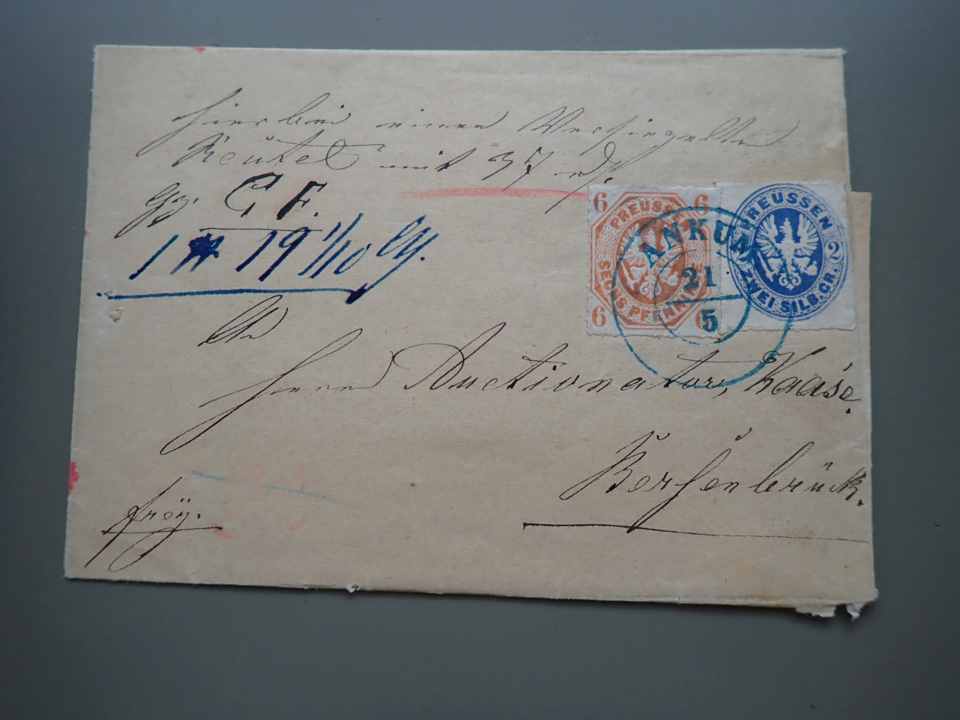 Hierbei einen Versiegelten
Beutel mit 37
gz. C. F.
1 # 19 1/10 Lt.
An
Herrn Auctionator, Haase.
Bersenbrück.
frey.
6 6
PREUSSEN
SECHS PFENNINGE
6 6
PREUSSEN
2
ZWEI SILB. GR.
ANKUM
21
5